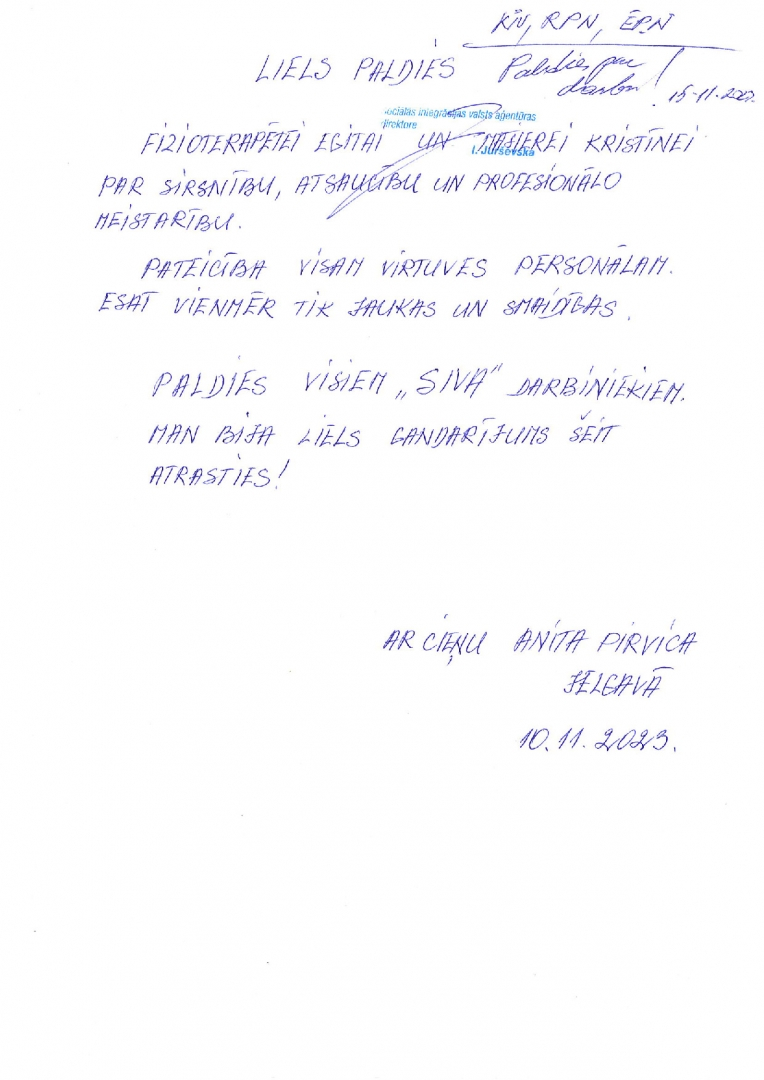 KIV, RPN, ĒPN
LIELS PALDIES
Paldies par
darbu!
15.11.2023.
Sociālās integrācijas valsts aģentūras
direktore
I. Jurševska
FIZIOTERAPĒTEI EGITAI UN MASIEREI KRISTĪNEI
PAR SIRSNĪBU, ATSAUCĪBU UN PROFESIONĀLO
MEISTARĪBU.
PATEICĪBA VISAM VIRTUVES PERSONĀLAM.
ESAT VIENMĒR TIK JAUKAS UN SMAIDĪGAS.
PALDIES VISIEM „SIVA" DARBINIEKIEM.
MAN BIJA LIELS GANDARĪJUMS ŠEIT
ATRASTIES!
AR CIEŅU ANITA PIRVICA
JELGAVĀ
10.11.2023.